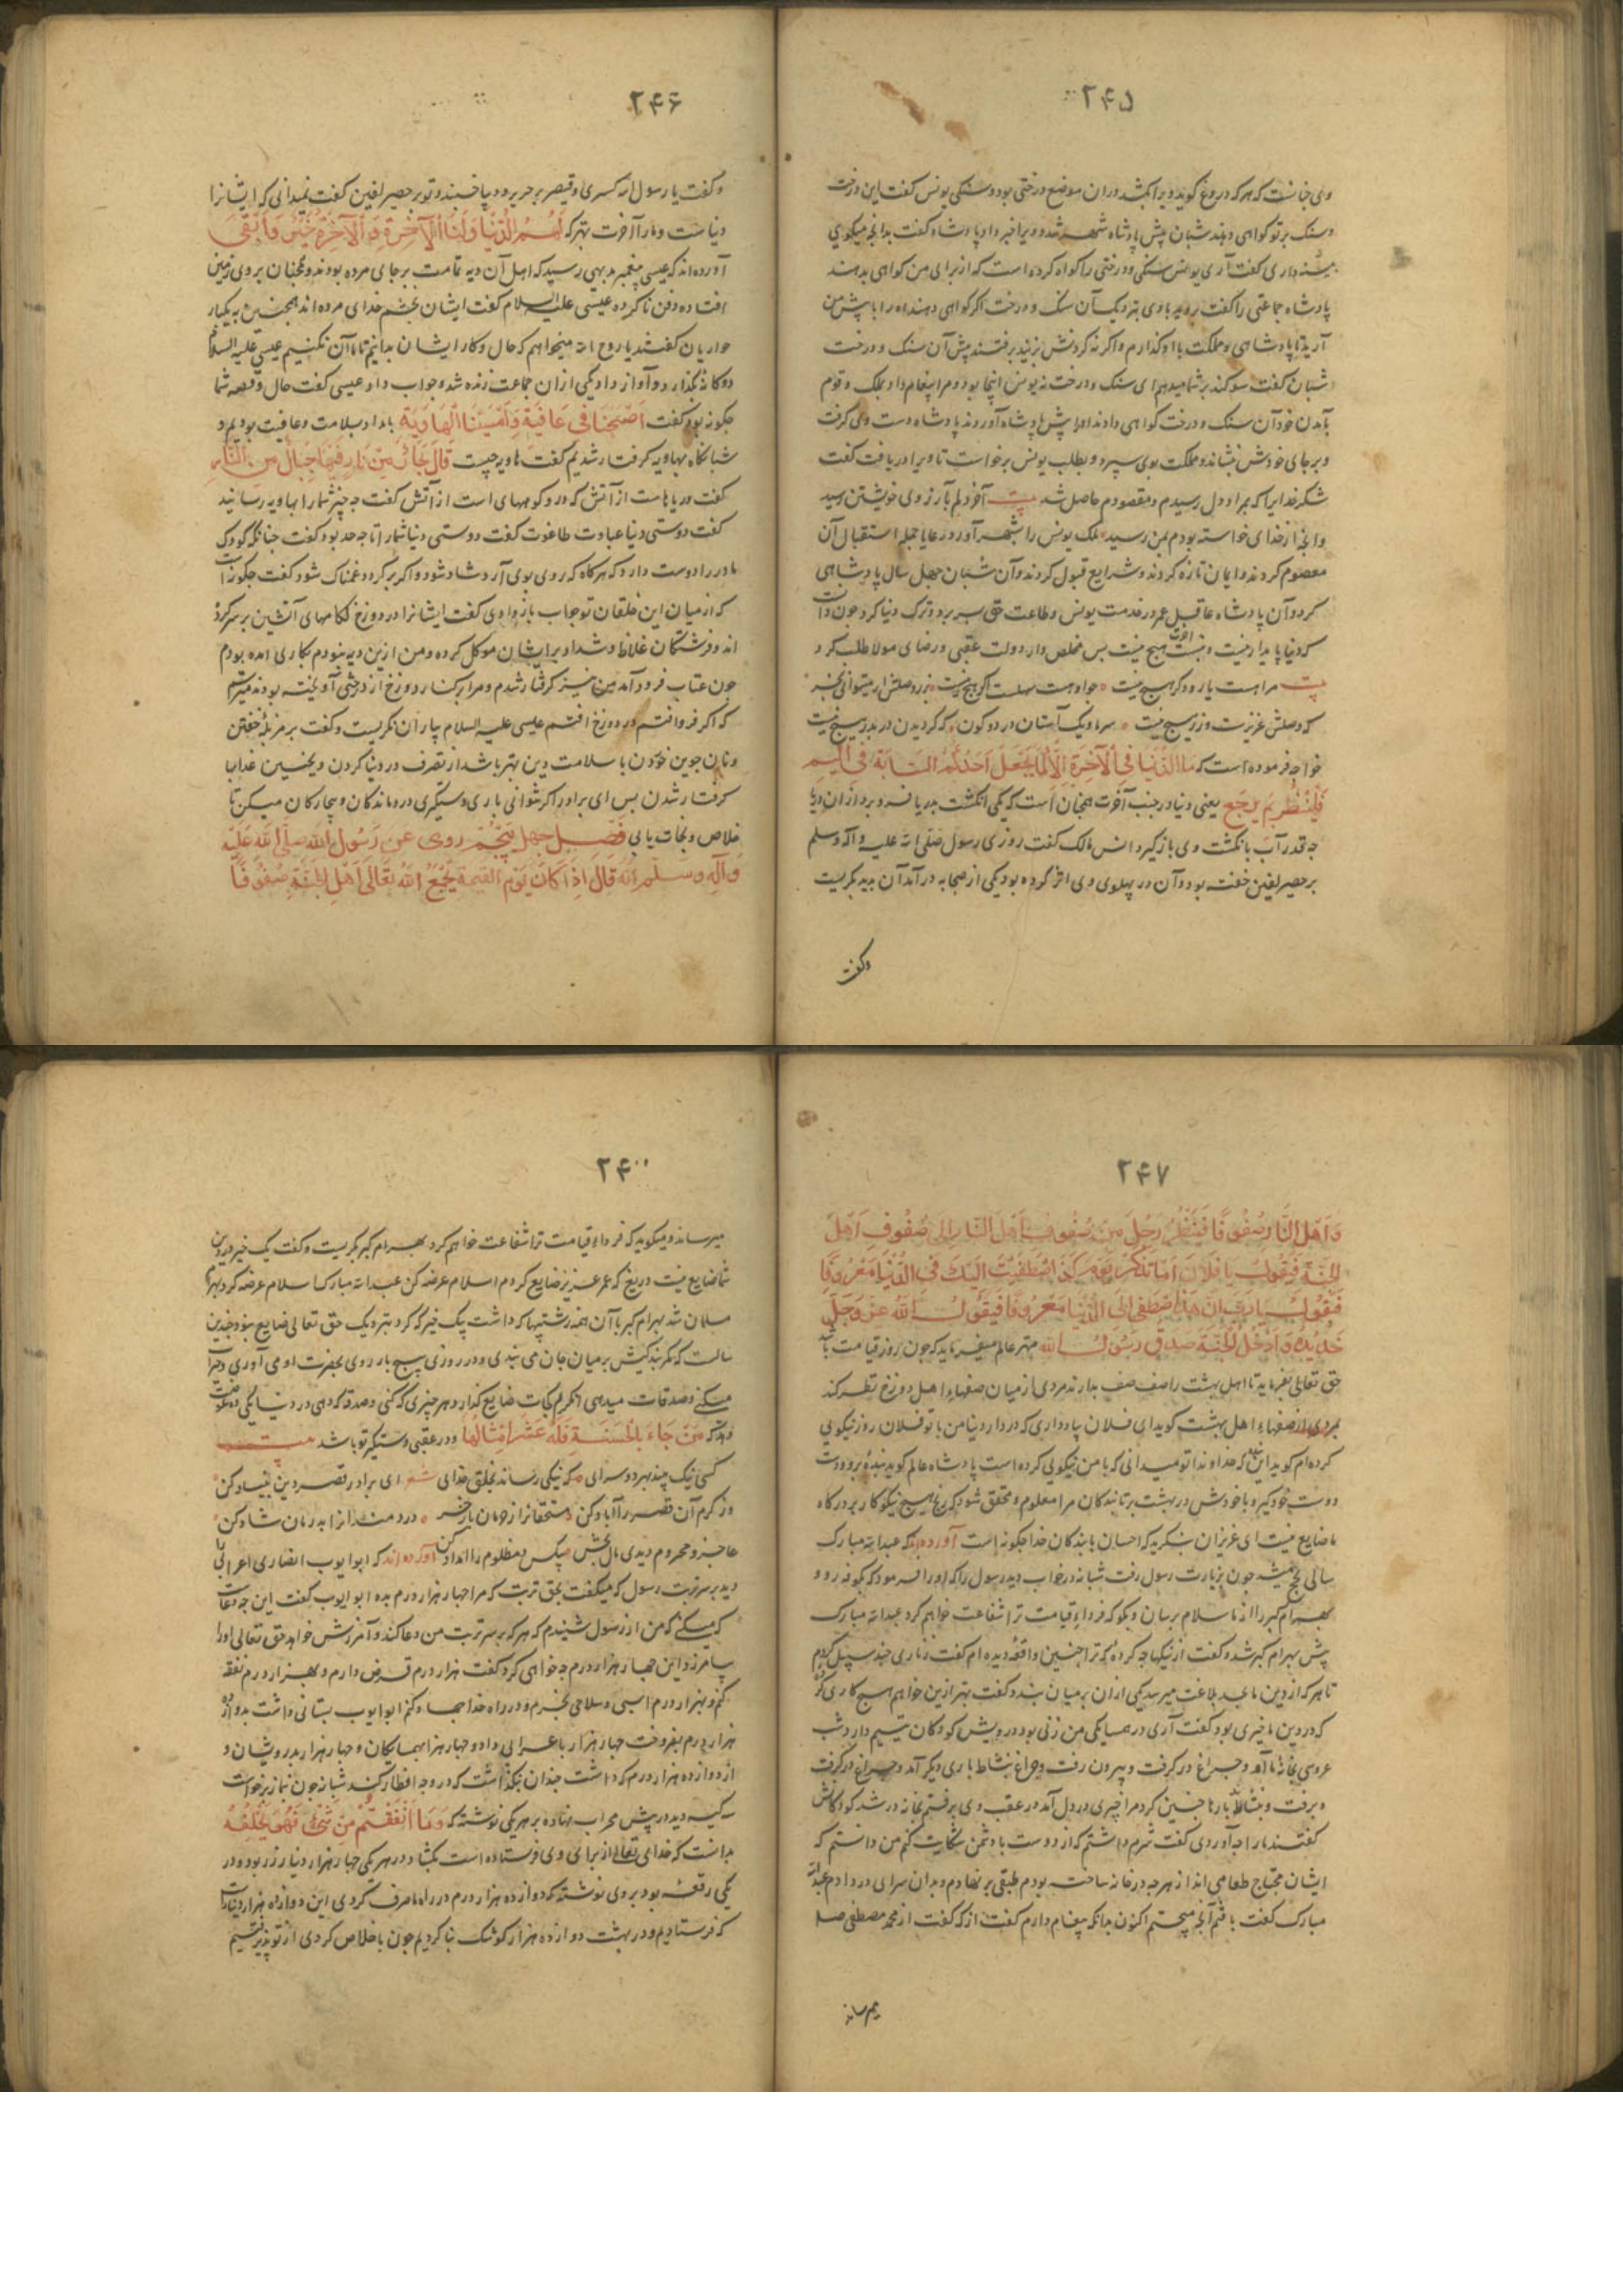 ۲۴۵
وی چنانست که هرکه دروغ گوید ویرا بکشند دران موضع درختی بود و سنگی یونس گفت این درخت
و سنگ بر تو گواهی دهند شبان پیش پادشاه شهر شد و ویرا خبر داد پادشاه گفت بدانچه میگوی
بینه داری گفت آری یونس سنگی و درختی را گواه کرده است که از برای من گواهی بدهند
پادشاه جماعتی را گفت روید با وی بنزدیک آن سنگ و درخت اگر گواهی دهند او را با پیش من
آرید تا پادشاهی و مملکت با او گذارم و اگر نه گردنش بزنید برفتند پیش آن سنگ و درخت
شبان گفت سوگند بر شما میدهم ای سنگ و درخت نه یونس اینجا بود و مرا پیغام داد بملک و قوم
بآمدن خود آن سنگ و درخت گواهی دادند او را پیش پادشاه آوردند پادشاه دست وی گرفت
و بر جای خودش نشاند و مملکت بوی سپرد و بطلب یونس برخواست تا ویرا دریافت گفت
شکر خدایرا که بمراد دل رسیدم و مقصودم حاصل شد بیت آخر دلم بآرزوی خویشتن رسید
وانچه از خدای خواسته بودم بمن رسید ملک یونس را بشهر آورد و رعایا جمله استقبال آن
معصوم کردند و ایمان تازه کردند و شرایع قبول کردند و آن شبان چهل سال پادشاهی
کرد و آن پادشاه عاقل عمر در خدمت یونس و طاعت حق بسر برد و ترک دنیا کرد چون دانست
که دنیا پایدار نیست و نیست هیچ نیست بس مخلص وار دولت عقبی و رضای مولا طلب کرد
بیت مرا هست یار و دگر هیچ نیست چو او هست سهلست اگر هیچ نیست بزر وصلش ار میتوانی بخر
که وصلش عزیزست و زر هیچ نیست سر ما و یک آستان در دو کون که گردیدن در بدر هیچ نیست
خواجه فرموده است که مَا الدُّنْیَا فِی الْآخِرَةِ اِلَّا کَمَا یَجْعَلُ اَحَدُکُمُ السَّبَّابَةَ فِی الْیَمِّ
فَلْیَنْظُرْ بِمَ یَرْجِعُ یعنی دنیا در جنب آخرت همچنان است که یکی انگشت بدریا فرو برد از ان دریا
چه قدر آب بانگشت وی بازگیرد انس مالک گفت روزی رسول صلی الله علیه و آله وسلم
بر حصیر لیفین خفته بود و آن در پهلوی وی اثر کرده بود یکی از صحابه در آمد آن بدید بگریست
وگفت
۲۴۶
وگفت یا رسول الله کسری و قیصر بر حریر و دیبا خسبند و تو بر حصیر لیفین گفت نمیدانی که ایشانرا
دنیاست و ما را آخرت بهتر که لَهُمُ الدُّنْیَا وَلَنَا الْآخِرَةُ وَالْآخِرَةُ خَیْرٌ وَاَبْقَی
آورده اند که عیسی پیغمبر بدیهی رسید که اهل آن دیه تمامت بر جای مرده بودند و همچنان بر روی زمین
افتاده و دفن ناکرده عیسی علیه السلام گفت ایشان بخشم خدای مرده اند همچنین به یکبار
حواریان گفتند یا روح الله میخواهیم که حال و کار ایشان بدانیم تا ما آن نکنیم عیسی علیه السلام
دوگانه بگذارد و آواز داد یکی از ان جماعت زنده شد و جواب داد عیسی گفت حال و قصه شما
چگونه بود گفت اَصْبَحْنَا فِی عَافِیَةٍ وَاَمْسَیْنَا فِی الْهَاوِیَةِ بامداد بسلامت و عافیت بودیم و
شبانگاه بهاویه گرفتار شدیم گفت هاویه چیست قَالَ بِحَارٌ مِنْ نَارٍ فِیهَا جِبَالٌ مِنَ النَّارِ
گفت دریاهاست از آتش که درو کوههای است از آتش گفت چه چیز شما را بهاویه رسانید
گفت دوستی دنیا عبادت طاغوت گفت دوستی دنیا شما را تا چه حد بود گفت چنانکه کودک
مادر را دوست دارد که هرگاه که روی بوی آرد شاد شود و اگر برگردد غمناک شود گفت چگونه است
که از میان این خلقان تو جواب باز دادی گفت ایشانرا در دوزخ لگامهای آتشین بر سر کرده
اند و فرشتگان غلاظ و شداد بر ایشان موکل کرده و من ازین دیه نبودم بکاری آمده بودم
چون عتاب فرود آمد من نیز گرفتار شدم و مرا بر کنار دوزخ از درختی آویخته بودند میترسم
که اگر فرو افتم در دوزخ افتم عیسی علیه السلام بیاران نگریست و گفت بر مزبله خفتن
و نان جوین خوردن با سلامت دین بهتر باشد از تصرف در دنیا کردن و بچنین عذاب
گرفتار شدن بس ای برادر اگر توانی یاری و دستگیری درماندگان و بیچارگان میکن تا
خلاص و نجات یابی فصل چهل پنجم روی عن رسول الله صلی الله علیه
وآله وسلم انه قال اذا کان یوم القیمة یجمع الله تعالی اهل الجنة صفوفاً
۲۴۷
وَاَهْلَ النَّارِ صُفُوفًا فَیَنْظُرُ رَجُلٌ مِنْ صُفُوفِ اَهْلِ النَّارِ اِلَی صُفُوفِ اَهْلِ
الْجَنَّةِ فَیَقُولُ یَا فُلَانُ اَمَا تَذْکُرُ یَوْمَ کَذَا اصْطَنَعْتُ اِلَیْکَ فِی الدُّنْیَا مَعْرُوفًا
فَیَقُولُ یَا رَبِّ اِنَّ هَذَا اصْطَنَعَ اِلَیَّ فِی الدُّنْیَا مَعْرُوفًا فَیَقُولُ اللّٰهُ عَزَّ وَجَلَّ
خُذْ بِیَدِهِ وَاَدْخِلْهُ الْجَنَّةَ صدق رسول الله مهتر عالم میفرماید که چون روز قیامت باشد
حق تعالی بفرماید تا اهل بهشت را صف صف بدارند مردی از میان صفهاء اهل دوزخ نظر کند
بمردی از صفهاء اهل بهشت گوید ای فلان یاد داری که در دار دنیا من با تو فلان روز نیکویی
کرده ام گوید این که خداوندا تو میدانی که با من نیکویی کرده است پادشاه عالم گوید بنده برو و دست
دوست خود گیر و با خودش در بهشت بر تا بندگان مرا معلوم و محقق شود که رنج هیچ نیکوکار بر درگاه
ما ضایع نیست ای عزیزان بنگرید که احسان با بندگان خدا چگونه است آورده اند که عبدالله مبارک
سالی بحج میشد چون بزیارت رسول رفت شبانه در خواب دید رسول را که او را فرمود که بکوفه رو و
بهرام گبر را از ما سلام برسان و بگو که فرداء قیامت ترا شفاعت خواهم کرد عبدالله مبارک
پیش بهرام گبر شد و گفت از نیکیها چه کرده که ترا چنین واقعه دیده ام گفت زناری چند سبیل کردم
تا هر که از دین ما بحد بلاغت میرسد یکی از ان بر میان بندد گفت بهتر ازین خواهم هیچ کاری کرده
که در دین ما خیری بود گفت آری در همسایگی من زنی بود درویش کودکان یتیم دارد شب
عروسی بخانه ما آمد و چراغ در گرفت و بیرون رفت و چراغ بنشاند باری دیگر آمد و چراغ در گرفت
و برفت و بنشاند بارها چنین کرد مرا چیزی در دل آمد در عقب وی برفتم بخانه در شد کودکانش
گفتند ما را چه آوردی گفت شرم داشتم که از دوست با دشمن شکایت کنم من دانستم که
ایشان محتاج طعامی اند از هرچه در خانه ساخته بودم طبقی بر نهادم و بدان سرای در دادم عبدالله
مبارک گفت یافتم آنچه میجستم اکنون بدانکه پیغام دارم گفت از که گفت از محمد مصطفی صلعم
میرساند
۲۴
میرساند و میگوید که فرداء قیامت ترا شفاعت خواهم کرد بهرام گبر بگریست و گفت یک خیر در دین
شما ضایع نیست دریغ که عمر عزیز ضایع کردم اسلام عرضه کن عبدالله مبارک اسلام عرضه کرد بهرام
مسلمان شد بهرام گبر با آن همه زشتیها که داشت یک خیر که کرد بنزدیک حق تعالی ضایع نبود چندین
سالست که کمر بندگیش بر میان جان می بندی و در روزی پنج بار روی بحضرت او می آوری و خیرات
میکنی و صدقات میدهی اکرم کجات ضایع گذارد هر چیزی که کنی و صدقه که دهی در دنیا یکی ده عوضت
دهد که مَنْ جَاءَ بِالْحَسَنَةِ فَلَهُ عَشْرُ اَمْثَالِهَا و در عقبی دستگیر تو باشد بیت
کسی نیک بیند بهر دو سرای که نیکی رساند بخلق خدای شعر ای برادر قصر دین بنیاد کن
وز کرم آن قصر را آباد کن مستحقانرا ز حرمان باز خر دردمندانرا بدرمان شاد کن
عاجز و محروم دیدی مال بخش بیکس و مظلوم را امداد کن آورده اند که ابو ایوب انصاری اعرابی را
دید بر سر تربت رسول که میگفت بحق تربت که مرا چهار هزار درم بده ابو ایوب گفت این چه دعاست
که میکنی که من از رسول شنیدم که هرکه بر سر تربت من دعا کند و آمرزش خواهد حق تعالی او را
بیامرزد این چهار هزار درم چه خواهی کرد گفت هزار درم قرض دارم و بهزار درم نفقه
کنم و بهزار درم اسبی و سلاحی بخرم و در راه خدا جهاد کنم ابو ایوب بستانی داشت بدوازده
هزار درم بفروخت چهار هزار باعرابی داد و چهار هزار بهمسایگان و چهار هزار بدرویشان و
از دوازده هزار درم که داشت چندان نگذاشت که در وجه افطار کند شبانه چون بنماز برخواست
سه کیسه دید در پیش محراب نهاده بر هر یکی نوشته که وَمَا اَنْفَقْتُمْ مِنْ شَیْءٍ فَهُوَ یُخْلِفُهُ
بدانست که خدای تعالی از برای وی فرستاده است بگشاد در هر یکی چهار هزار دینار زر بود و در
یکی رقعه بود بر وی نوشته که دوازده هزار درم در راه ما صرف کردی این دوازده هزار دینارست
که فرستادیم و در بهشت دوازده هزار کوشک بنا کردیم چون باخلاص کردی از تو پذیرفتیم